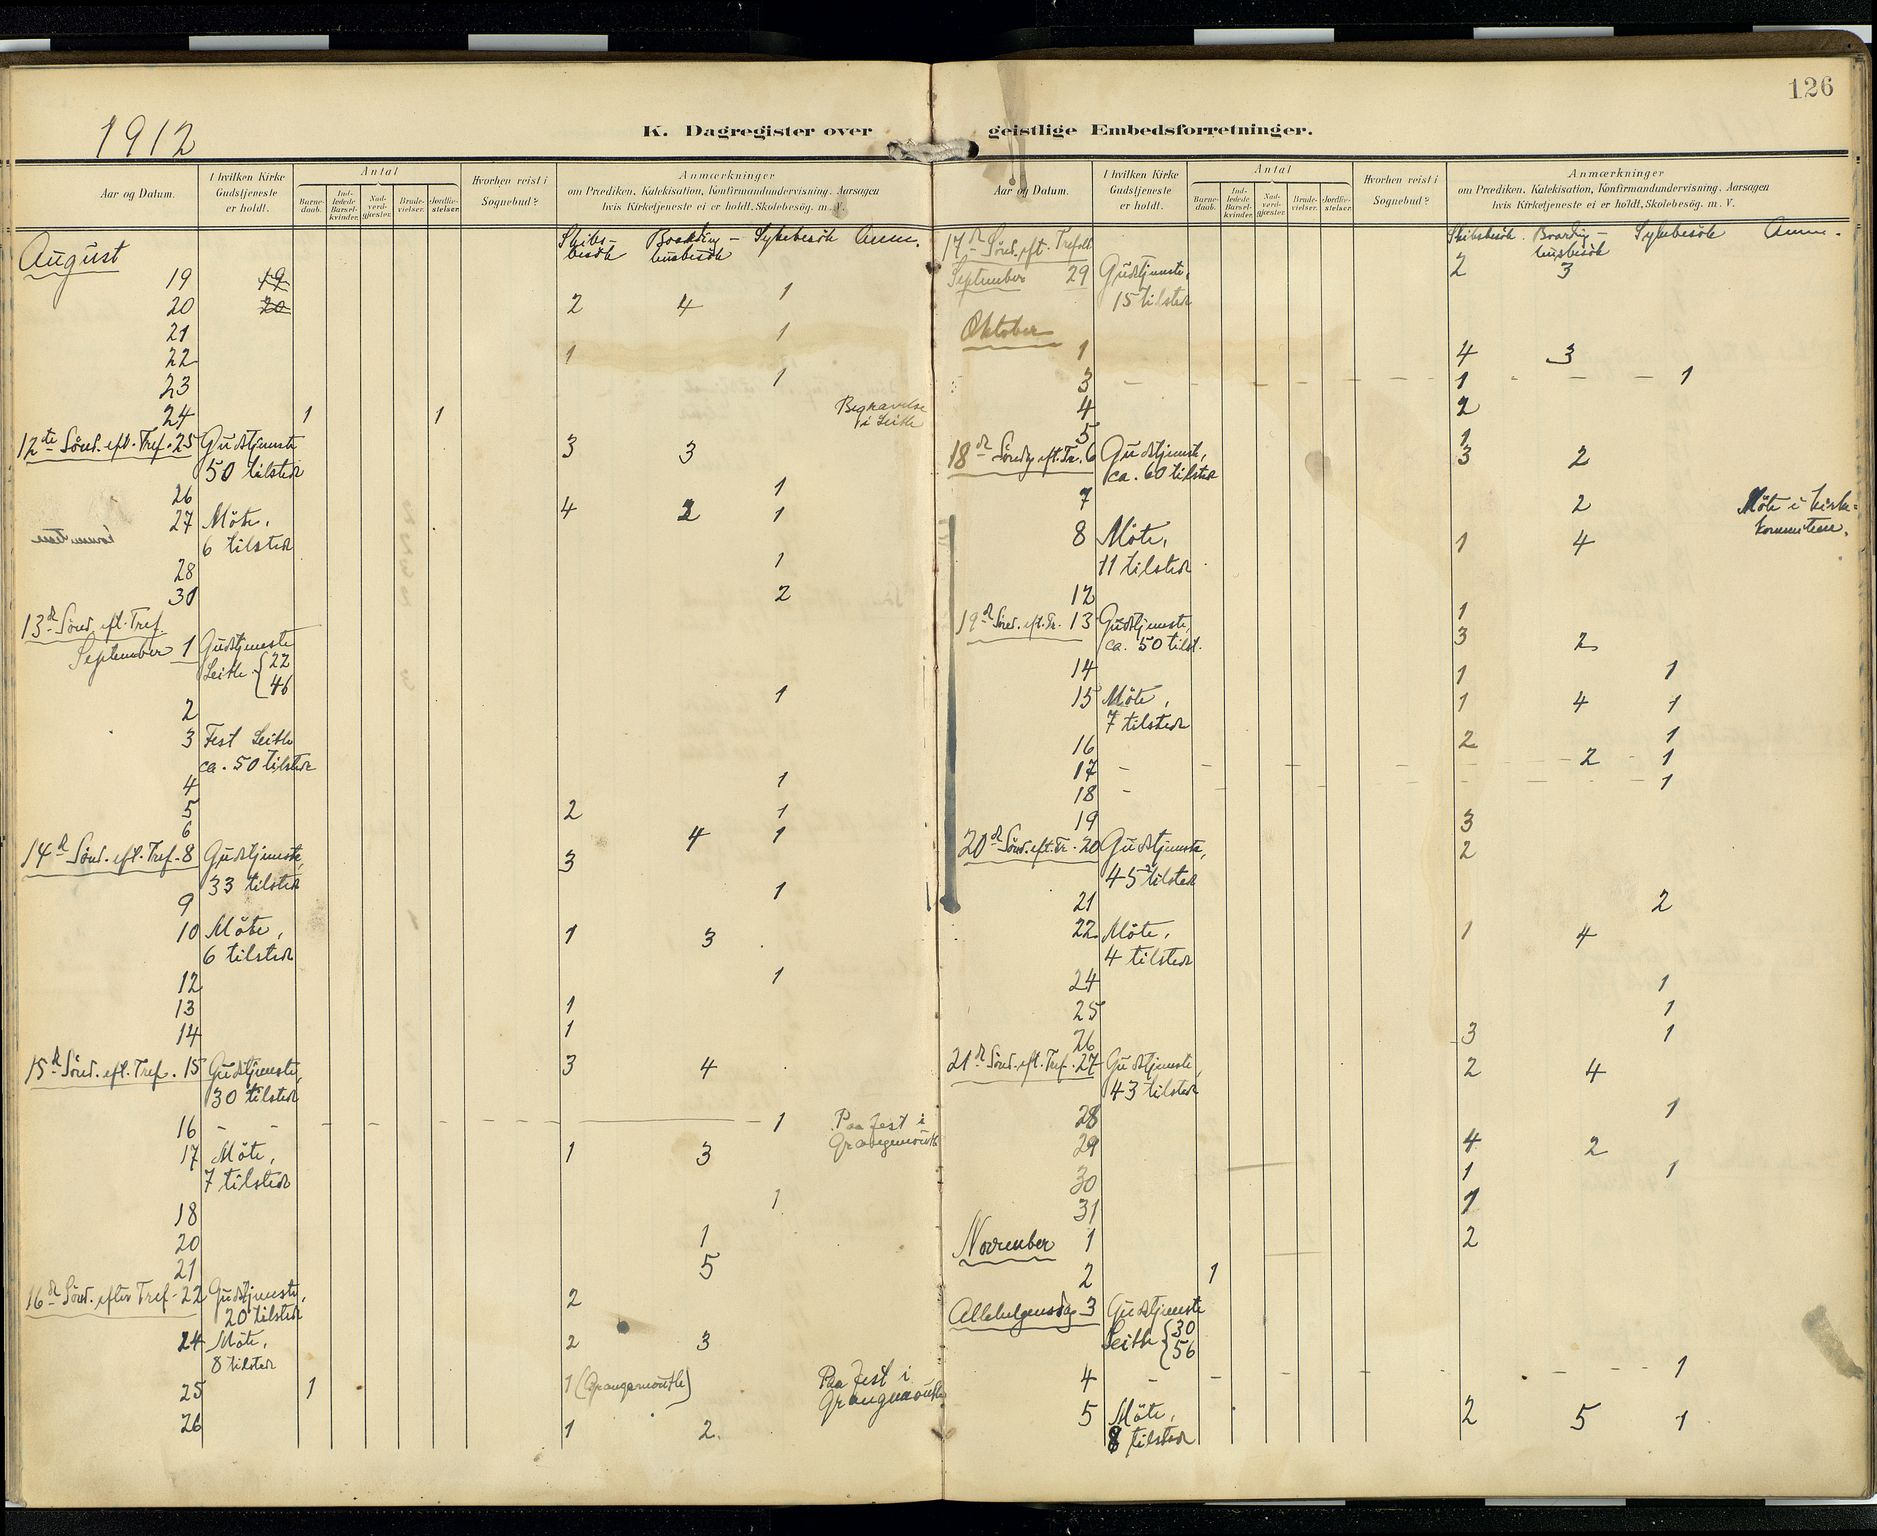 126
1912
K. Dagregister over geistlige Embedsforretninger.
Aar og Datum.
I hvilken Kirke Gudstjeneste er holdt.
Antal
Barnedaab.
Indledede Barselkvinder.
Nadverdgjæster.
Brudevielser.
Jordfæstelser.
Hvorhen reist i Sognebud?
Anmærkninger
om Prædiken, Katekisation, Konfirmandundervisning, Aarsagen
hvis Kirketjeneste ei er holdt, Skolebesøg. m. V.
August Skibsbesök Boardinghusbesök Sykebesök Anm.
19 19 1
20 20 2 4
21 1
22 1
23 1
24 1 1 Begravelse i Leith
12te Sönd. eft. Tref. 25 Gudstjeneste 3 3
50 tilstede
26 1
27 Möte, 4 2 1
6 tilstede
28 1
30 2
13de Sönd. eft. Tref.
September 1 Gudstjeneste
Leith { 22
46
2 1
3 Fest Leith
ca. 50 tilstede
4 1
5 2 1
6 4 1
14de Sönd. eft. Tref. 8 Gudstjeneste, 3
33 tilstede
9 1
10 Möte, 1 3
6 tilstede
12 1
13 1
14 1
15de Sönd. eft. Tref. 15 Gudstjeneste, 3 4
30 tilstede
16 - - - 1 Paa fest i Grangemouth
17 Möte, 1 3
7 tilstede
18 1
20 1
21 5
16de Sönd. efter Tref. 22 Gudstjeneste, 2
20 tilstede
24 Möte, 2 3
8 tilstede
25 1 1 (Grangemouth) Paa fest i Grangemouth
26 1 2.
Aar og Datum.
I hvilken Kirke Gudstjeneste er holdt.
Antal
Barnedaab.
Indledede Barselkvinder.
Nadverdgjæster.
Brudevielser.
Jordfæstelser.
Hvorhen reist i Sognebud?
Anmærkninger
om Prædiken, Katekisation, Konfirmandundervisning, Aarsagen
hvis Kirketjeneste ei er holdt, Skolebesög. m. V.
17de Sönd. eft. Trefolt Skibsbesök. Boardinghusbesök Sykebesök Anm.
September 29 Gudstjeneste, 2 3
15 tilstede
Oktober
1 4 3
3 - - - 1 - - - 1
4 2
5 1
18de Söndag eft. Tr. 6 Gudstjeneste, 3 2
ca. 60 tilstede
7 2 Möte i kirkekommiteen.
8 Möte, 1 4
11 tilstede
12 1
19de Sönd. eft. Tr. 13 Gudstjeneste, 3 2
ca. 50 tilst.
14 1 1
15 Möte, 1 4 1
7 tilstede
16 2 1
17 - - - 2 - 1
18 - - - 1
19 3
20de Sönd. eft. Tr. 20 Gudstjeneste, 2
45 tilstede
21 2
22 Möte, 1 4
4 tilstede
24 1
25 1
26 3 1
21de Sönd. eft. Tref. 27 Gudstjeneste, 2 4
43 tilstede
28 1
29 4 2
30 1 1
31 1
November 1 2
2 1
Allehelgensdag 3 Gudstjeneste
Leith { 30
56
4 - - - 1
5 Möte, 2 5 1
8 tilstede